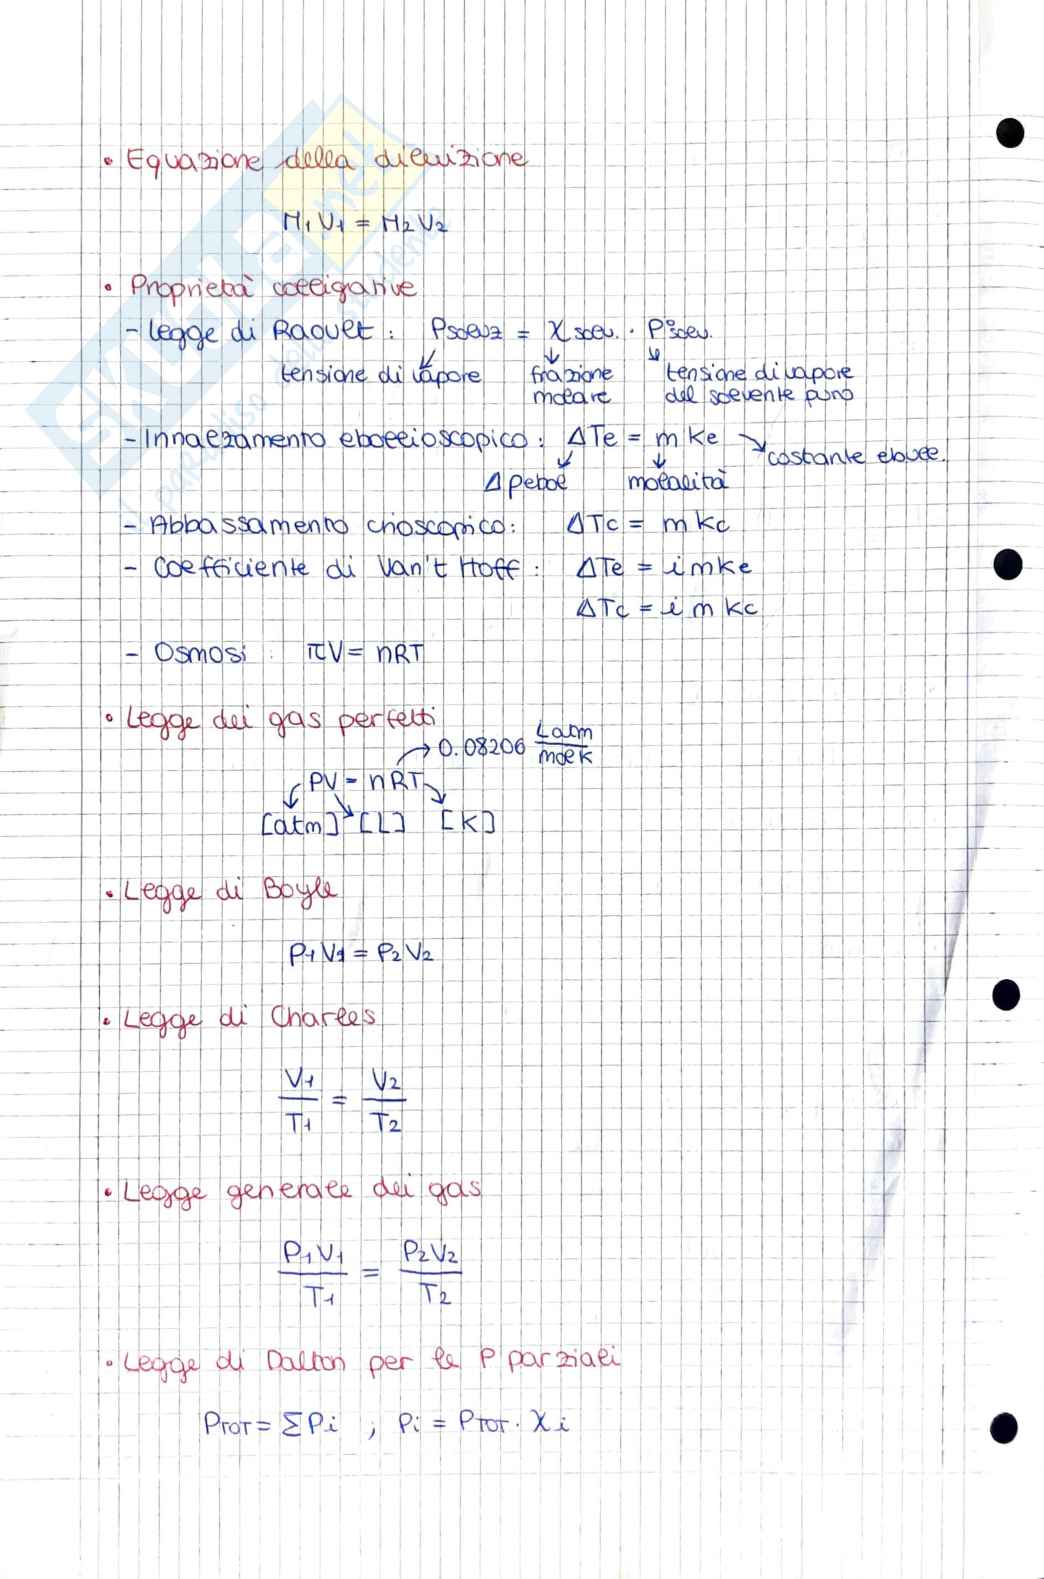 • Equazione della diluizione
M₁V₁ = M₂V₂
• Proprietà colligative
- Legge di Raoult: Psoluz = χ solv. · P°solv.
tensione di vapore frazione molare tensione di vapore del solvente puro
- Innalzamento ebollioscopico: ΔTe = m Ke → costante ebull.
Δ peboll molalità
- Abbassamento crioscopico: ΔTc = m Kc
- Coefficiente di Van't Hoff: ΔTe = i m Ke
ΔTc = i m Kc
- Osmosi: πV = nRT
• Legge dei gas perfetti
→ 0.08206 L atm / mol K
PV = nRT
[atm] [L] [K]
• Legge di Boyle
P₁V₁ = P₂V₂
• Legge di Charles
V₁/T₁ = V₂/T₂
• Legge generale dei gas
P₁V₁/T₁ = P₂V₂/T₂
• Legge di Dalton per le P parziali
PTOT = ΣPi , Pi = PTOT · χi